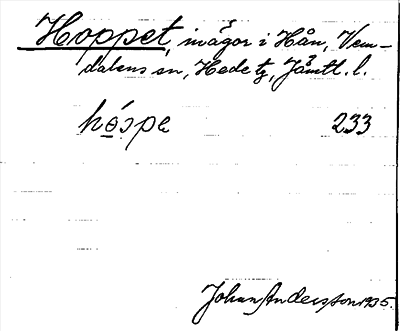 Hoppet, inägor i Hån, Vem-
dalens sn, Hede tg, Jämtl. l.
hóspe 233
Johan Andersson 1935.